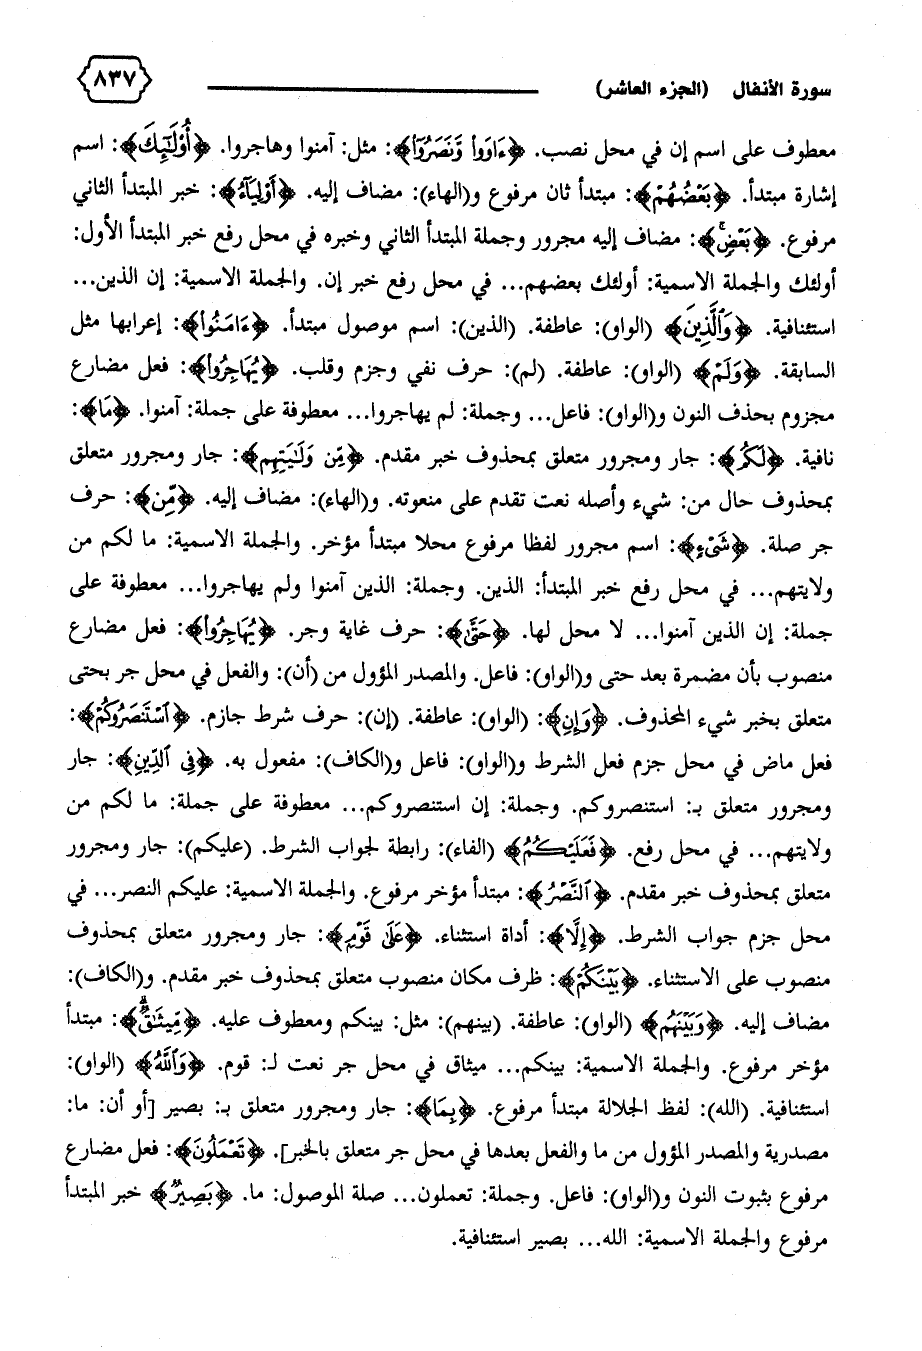 سورة الأنفال (الجزء العاشر) ٨٣٧
معطوف على اسم إن في محل نصب. ﴿ءَاوَوا۟ وَّنَصَرُوٓا۟﴾: مثل: آمنوا وهاجروا. ﴿أُو۟لَـٰٓئِكَ﴾: اسم
إشارة مبتدأ. ﴿بَعْضُهُمْ﴾: مبتدأ ثان مرفوع و(الهاء): مضاف إليه. ﴿أَوْلِيَآءُ﴾: خبر المبتدأ الثاني
مرفوع. ﴿بَعْضٍۚ﴾: مضاف إليه مجرور وجملة المبتدأ الثاني وخبره في محل رفع خبر المبتدأ الأول:
أولئك والجملة الاسمية: أولئك بعضهم... في محل رفع خبر إن. والجملة الاسمية: إن الذين...
استئنافية. ﴿وَٱلَّذِينَ﴾ (الواو): عاطفة. (الذين): اسم موصول مبتدأ. ﴿ءَامَنُوا۟﴾: إعرابها مثل
السابقة. ﴿وَلَمْ﴾ (الواو): عاطفة. (لم): حرف نفي وجزم وقلب. ﴿يُهَاجِرُوا۟﴾: فعل مضارع
مجزوم بحذف النون و(الواو): فاعل... وجملة: لم يهاجروا... معطوفة على جملة: آمنوا. ﴿مَا﴾:
نافية. ﴿لَكُمْ﴾: جار ومجرور متعلق بمحذوف خبر مقدم. ﴿مِّن وَلَـٰيَتِهِم﴾: جار ومجرور متعلق
بمحذوف حال من: شيء وأصله نعت تقدم على منعوته. و(الهاء): مضاف إليه. ﴿مِّن﴾: حرف
جر صلة. ﴿شَىْءٍ﴾: اسم مجرور لفظا مرفوع محلا مبتدأ مؤخر. والجملة الاسمية: ما لكم من
ولايتهم... في محل رفع خبر المبتدأ: الذين. وجملة: الذين آمنوا ولم يهاجروا... معطوفة على
جملة: إن الذين آمنوا... لا محل لها. ﴿حَتَّىٰ﴾: حرف غاية وجر. ﴿يُهَاجِرُوا۟﴾: فعل مضارع
منصوب بأن مضمرة بعد حتى و(الواو): فاعل. والمصدر المؤول من (أن): والفعل في محل جر بحتى
متعلق بخبر شيء المحذوف. ﴿وَإِنِ﴾: (الواو): عاطفة. (إن): حرف شرط جازم. ﴿ٱسْتَنصَرُوكُمْ﴾:
فعل ماض في محل جزم فعل الشرط و(الواو): فاعل و(الكاف): مفعول به. ﴿فِى ٱلدِّينِ﴾: جار
ومجرور متعلق بـ: استنصروكم. وجملة: إن استنصروكم... معطوفة على جملة: ما لكم من
ولايتهم... في محل رفع. ﴿فَعَلَيْكُمُ﴾ (الفاء): رابطة لجواب الشرط. (عليكم): جار ومجرور
متعلق بمحذوف خبر مقدم. ﴿ٱلنَّصْرُ﴾: مبتدأ مؤخر مرفوع. والجملة الاسمية: عليكم النصر... في
محل جزم جواب الشرط. ﴿إِلَّا﴾: أداة استثناء. ﴿عَلَىٰ قَوْمٍ﴾: جار ومجرور متعلق بمحذوف
منصوب على الاستثناء. ﴿بَيْنَكُمْ﴾: ظرف مكان منصوب متعلق بمحذوف خبر مقدم. و(الكاف):
مضاف إليه. ﴿وَبَيْنَهُم﴾ (الواو): عاطفة. (بينهم): مثل: بينكم ومعطوف عليه. ﴿مِّيثَـٰقٌۗ﴾: مبتدأ
مؤخر مرفوع. والجملة الاسمية: بينكم... ميثاق في محل جر نعت لـ: قوم. ﴿وَٱللَّهُ﴾ (الواو):
استئنافية. (الله): لفظ الجلالة مبتدأ مرفوع. ﴿بِمَا﴾: جار ومجرور متعلق بـ: بصير [أو أن: ما:
مصدرية والمصدر المؤول من ما والفعل بعدها في محل جر متعلق بالخبر]. ﴿تَعْمَلُونَ﴾: فعل مضارع
مرفوع بثبوت النون و(الواو): فاعل. وجملة: تعملون... صلة الموصول: ما. ﴿بَصِيرٌ﴾ خبر المبتدأ
مرفوع والجملة الاسمية: الله... بصير استئنافية.